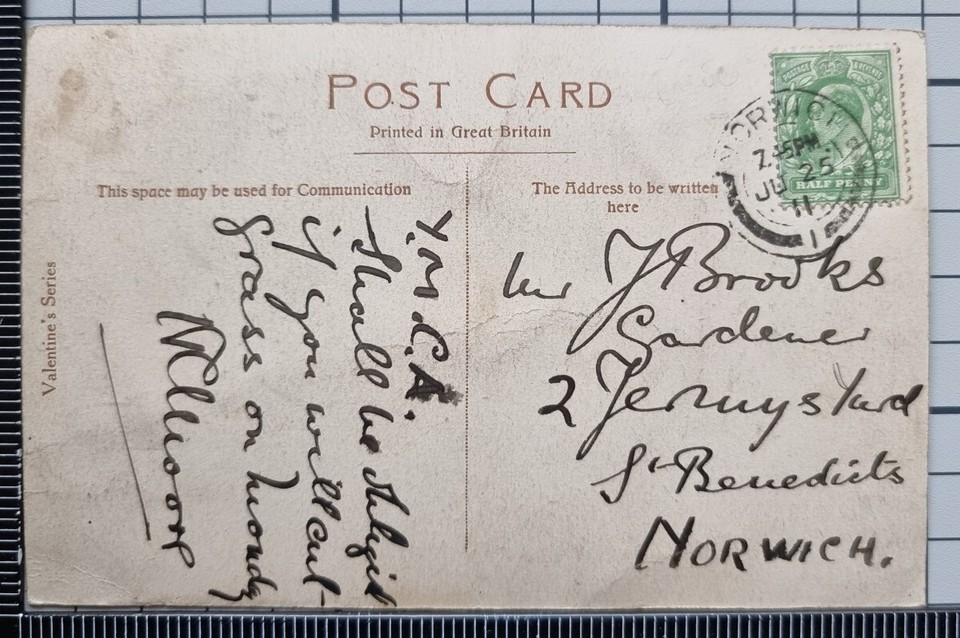 POST CARD
Printed in Great Britain
This space may be used for Communication
The Address to be written
here
Valentine's Series
Y.M.C.A.
Shall be obliged
if you will cut
grass on Monday
Mr J Brooks
Gardener
2 Jennys Yard
St Benedicts
NORWICH.
NORWICH
7.45PM
JU 25
11
1
POSTAGE & REVENUE
HALF PENNY